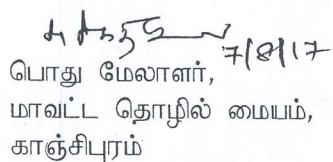 7/8/17
பொது மேலாளர்,
மாவட்ட தொழில் மையம்,
காஞ்சிபுரம்